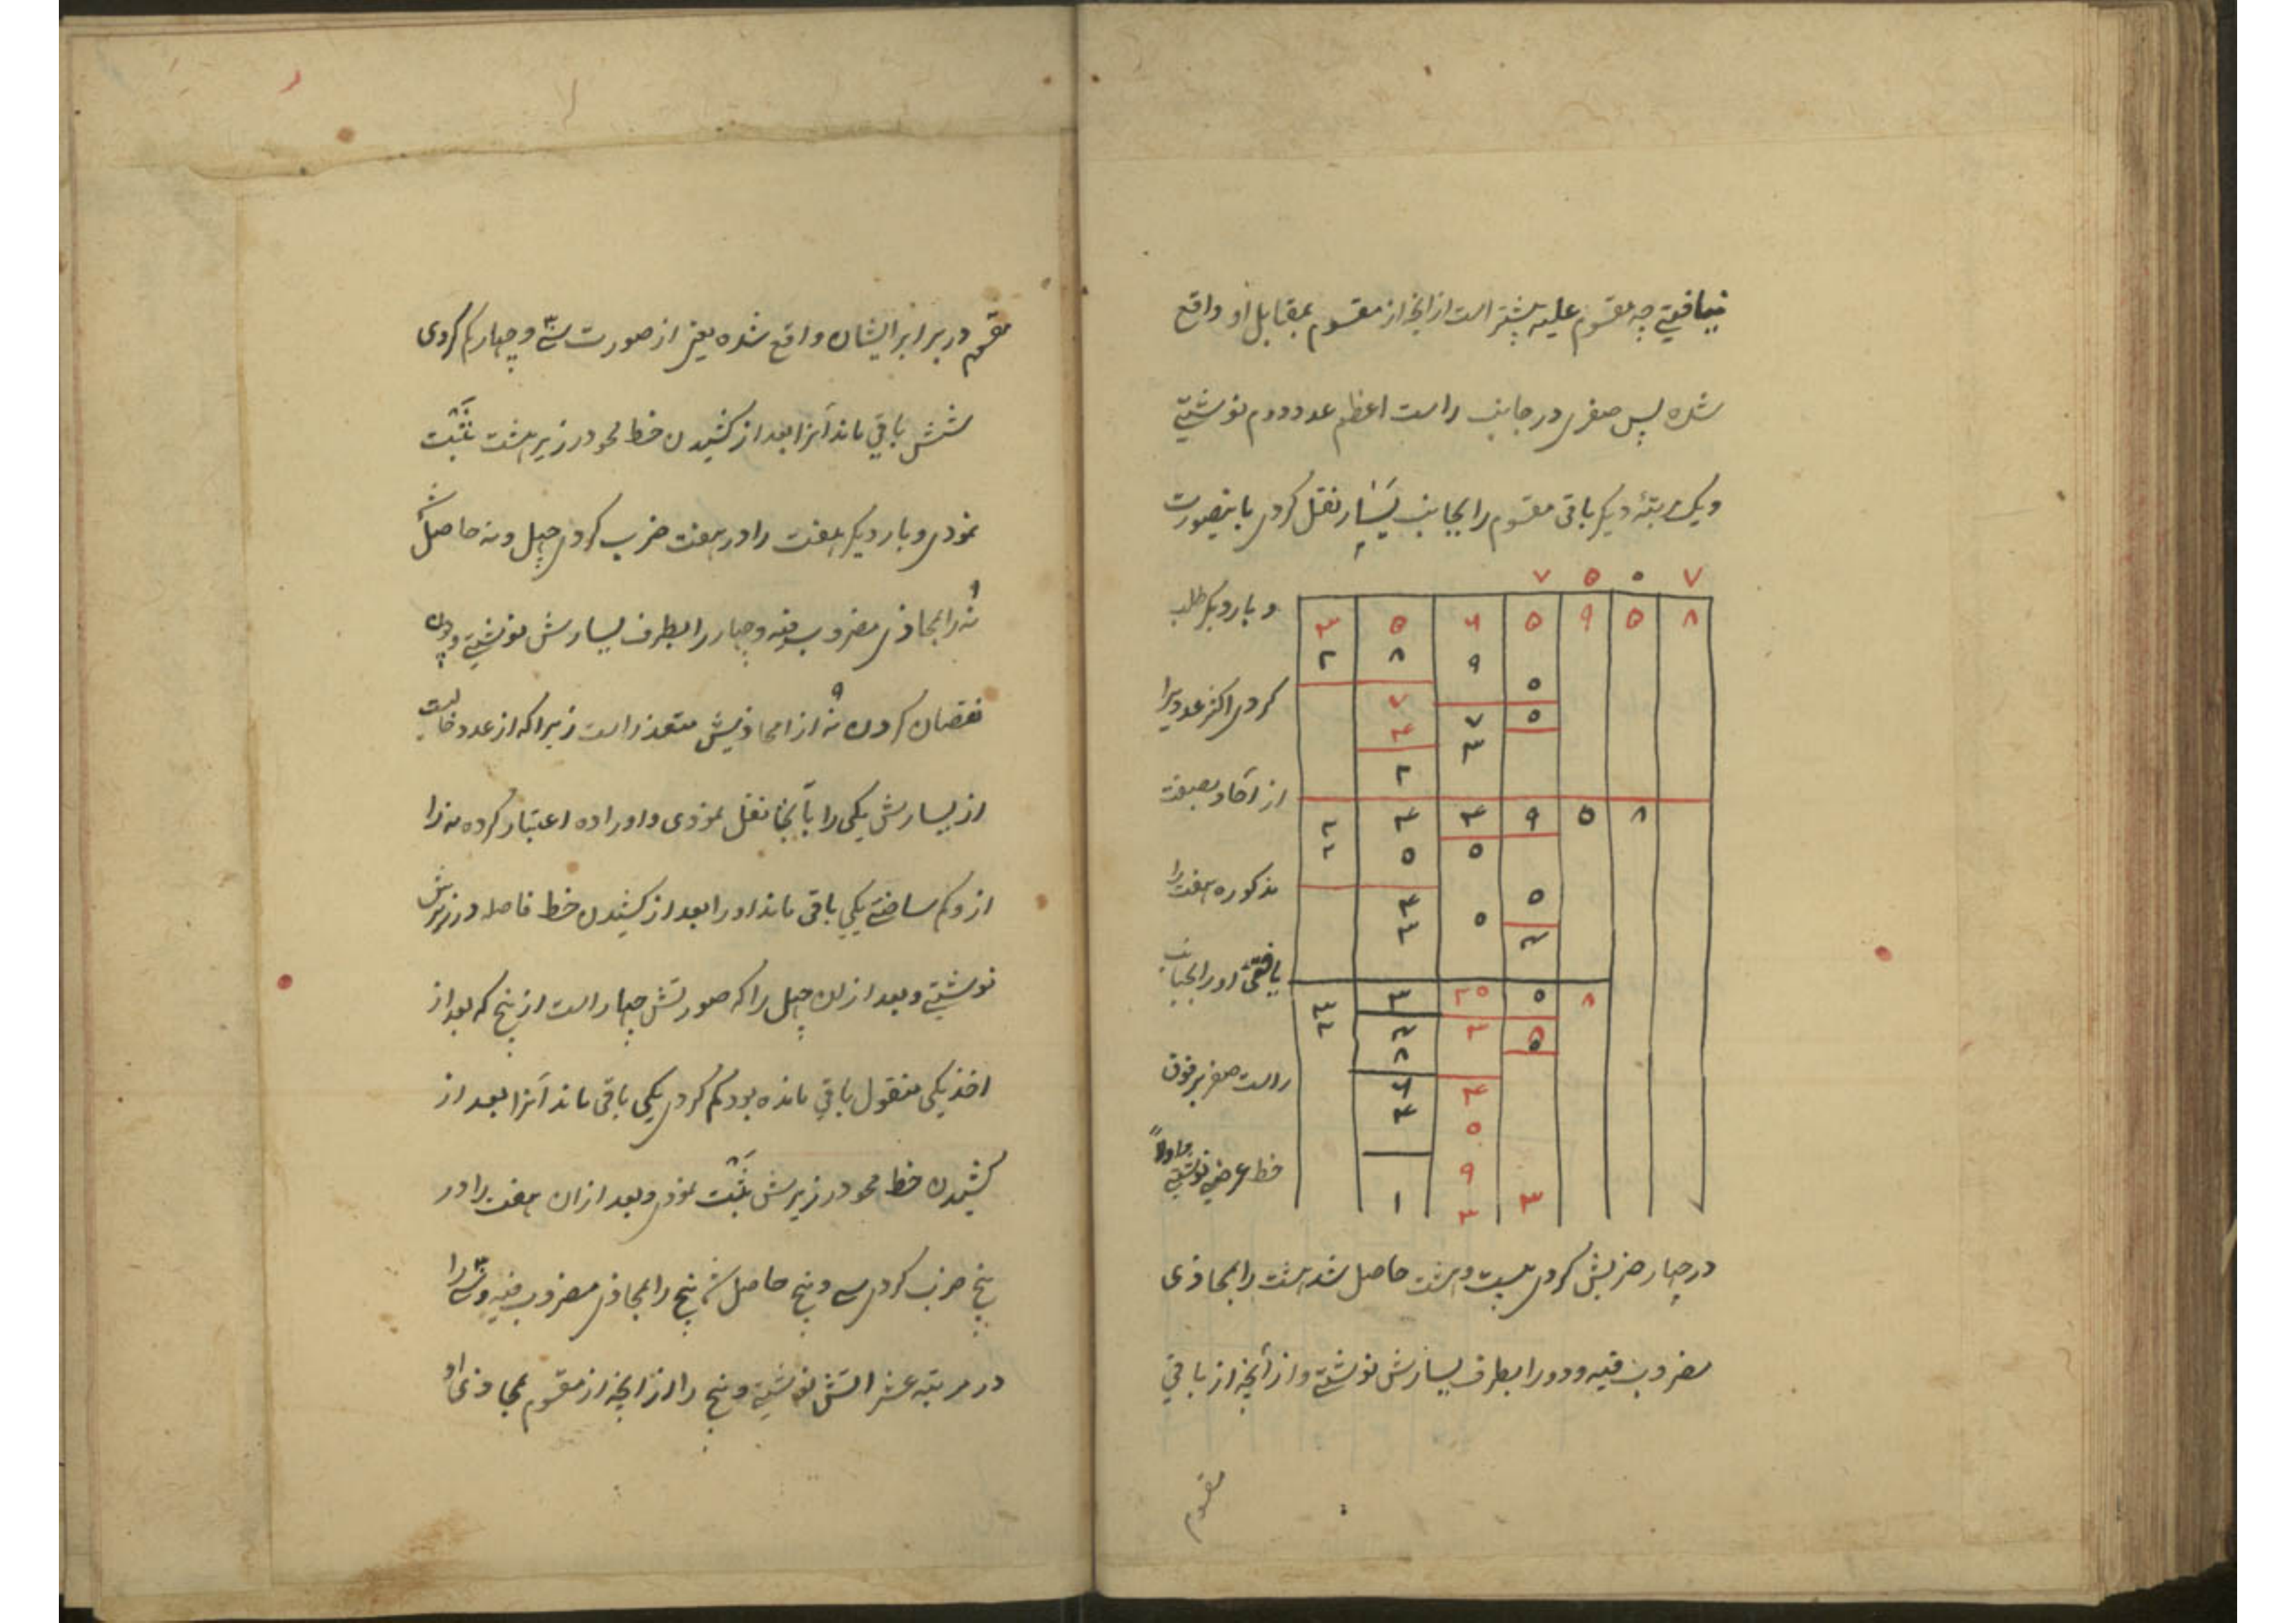 نیافتی چه مقسوم علیه بیشتر است از آنچه از مقسوم بمقابل او واقع
شده پس صفری در جانب راست اعظم عدد دوم نوشتی
ویک مرتبهٔ دیکر باقی مقسوم را بجانب یسار نقل کردی باینصورت
۷ ۵ ۰ ۷
و بار دیکر طلب
۳ ۵ ۶ ۵ ۹ ۵ ۸
۲ ۸ ۹
۵
کردی اکثر عددیرا
۷ ۷ ۵
۴ ۳
۲
از آحاد بصفت
۴ ۴ ۹ ۵ ۸
۵ ۵
مذکوره هفت را
۴ ۵ ۵
۳
یافتی اورا بجانب
۳ ۲۵ ۵ ۸
۳ ۵
۸
راست صفر بر فوق
۶ ۴
۴ ۵
خط عرضی نوشتی و اولاً
۹
۱ ۳ ۳
در چهار ضربش کردی بیست وهشت حاصل شد هشت را بمحاذی
مضروب فیه و دو را بطرف یسارش نوشتی و از آنچه از باقی
مقسوم
مقسوم در برابر ایشان واقع شده یعنی از صورت سی و چهار کم کردی
شش باقی ماند آنرا بعد از کشیدن خط محو در زیر هشت ثبت
نمودی و بار دیکر هفت را در هفت ضرب کردی چهل و نه حاصل شد
نه را بمحاذی مضروب فیه و چهار را بطرف یسارش نوشتی و چون
نقصان کردن نه از محاذیش متعذر است زیرا که از عدد خالیست
از یسارش یکی را بآنجا نقل نمودی و او را ده اعتبار کرده نه را
ازو کم ساختی یکی باقی ماند او را بعد از کشیدن خط فاصله در زیرش
نوشتی و بعد از ان چهل را که صورتش چهار است از پنج که بعد از
اخذ یکی منقول باقی مانده بود کم کردی یکی باقی ماند آنرا بعد از
کشیدن خط محو در زیرش ثبت نمودی و بعد از ان هفت را در
پنج ضرب کردی سی و پنج حاصل شد پنج را بمحاذی مضروب فیه و سی را
در مرتبه عشراتش نوشتی و پنج را از آنچه از مقسوم بمحاذی او